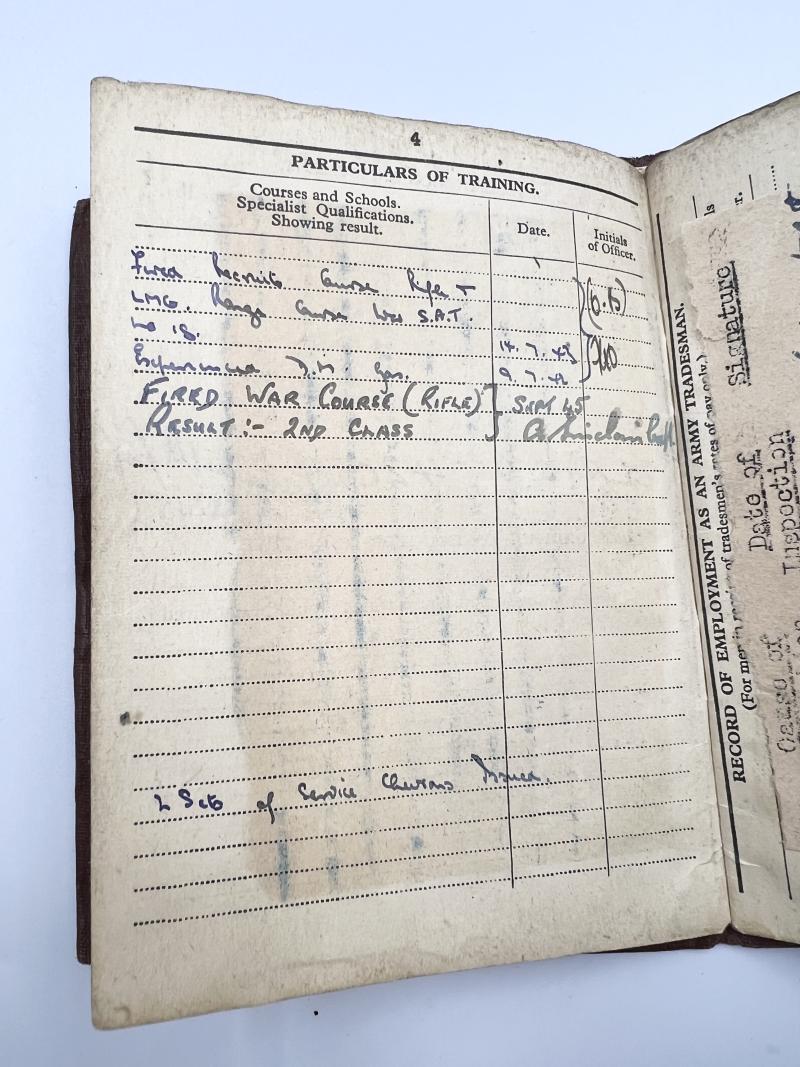 4
PARTICULARS OF TRAINING.
Courses and Schools.
Specialist Qualifications.
Showing result.
Date.
Initials
of Officer.
Fired Recruits Course Rifle +
LMG. Range Course S.A.T.
14.7.43
9.7.42
FIRED WAR COURSE (RIFLE)
RESULT:- 2ND CLASS
2 Sets of Service Chevrons Issued.
RECORD OF EMPLOYMENT AS AN ARMY TRADESMAN.
(For men in of tradesmen's rates of pay only.)
Signature
Date of
Inspection